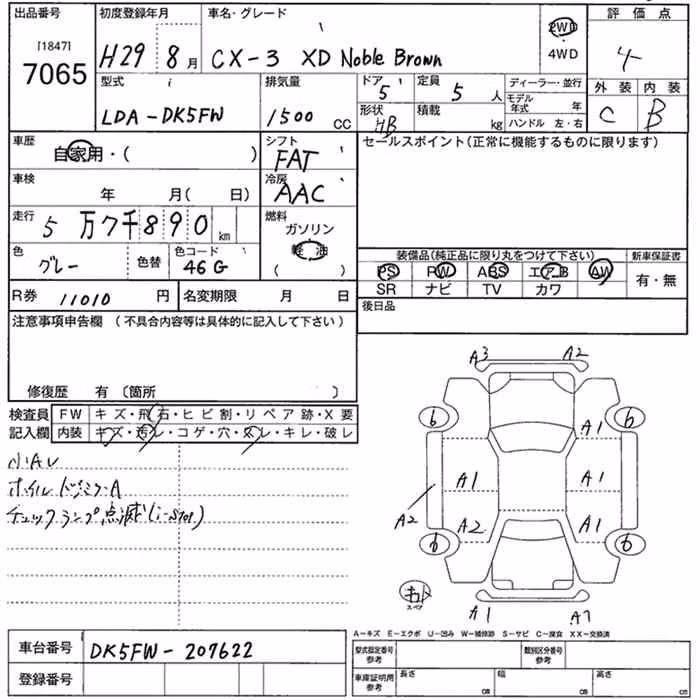 出品番号
[1847]
7065
初度登録年月
H29 8月
車名・グレード
CX-3 XD Noble Brown
2WD
4WD
評価点
4
外装 内装
C B
型式
LDA-DK5FW
排気量
1500 cc
ドア
5
定員
5 人
形状
HB
積載
kg
ディーラー・並行
モデル年式 年
ハンドル 左・右
車歴
自家用・( )
シフト
FAT
セールスポイント(正常に機能するものに限ります)
車検
年 月( 日)
冷房
AAC
走行
5万7千890km
燃料
ガソリン
軽油
( )
色
グレー
色替
色コード
46G
装備品(純正品に限り丸をつけて下さい)
PS PW ABS エアB AW
SR ナビ TV カワ
新車保証書
有・無
R券 11010 円
名変期限 月 日
後日品
注意事項申告欄(不具合内容等は具体的に記入して下さい)
修復歴 有〔箇所 〕
検査員
記入欄
FW キズ・飛石・ヒビ割・リペア跡・X要
内装 キズ・汚レ・コゲ・穴・スレ・キレ・破レ
小AU
チェックランプ点滅(i-stop)
A3 A2
6 6
A1
A1 A1
A2
A2 A1
6 6
スペア
A1 A7
A-キズ E-エクボ U-凹み W-補修跡 S-サビ C-腐食 XX-交換済
車台番号 DK5FW-207622
登録番号
型式指定番号
参考
類別区分番号
参考
車庫証明用
参考
長さ cm 幅 cm 高さ cm